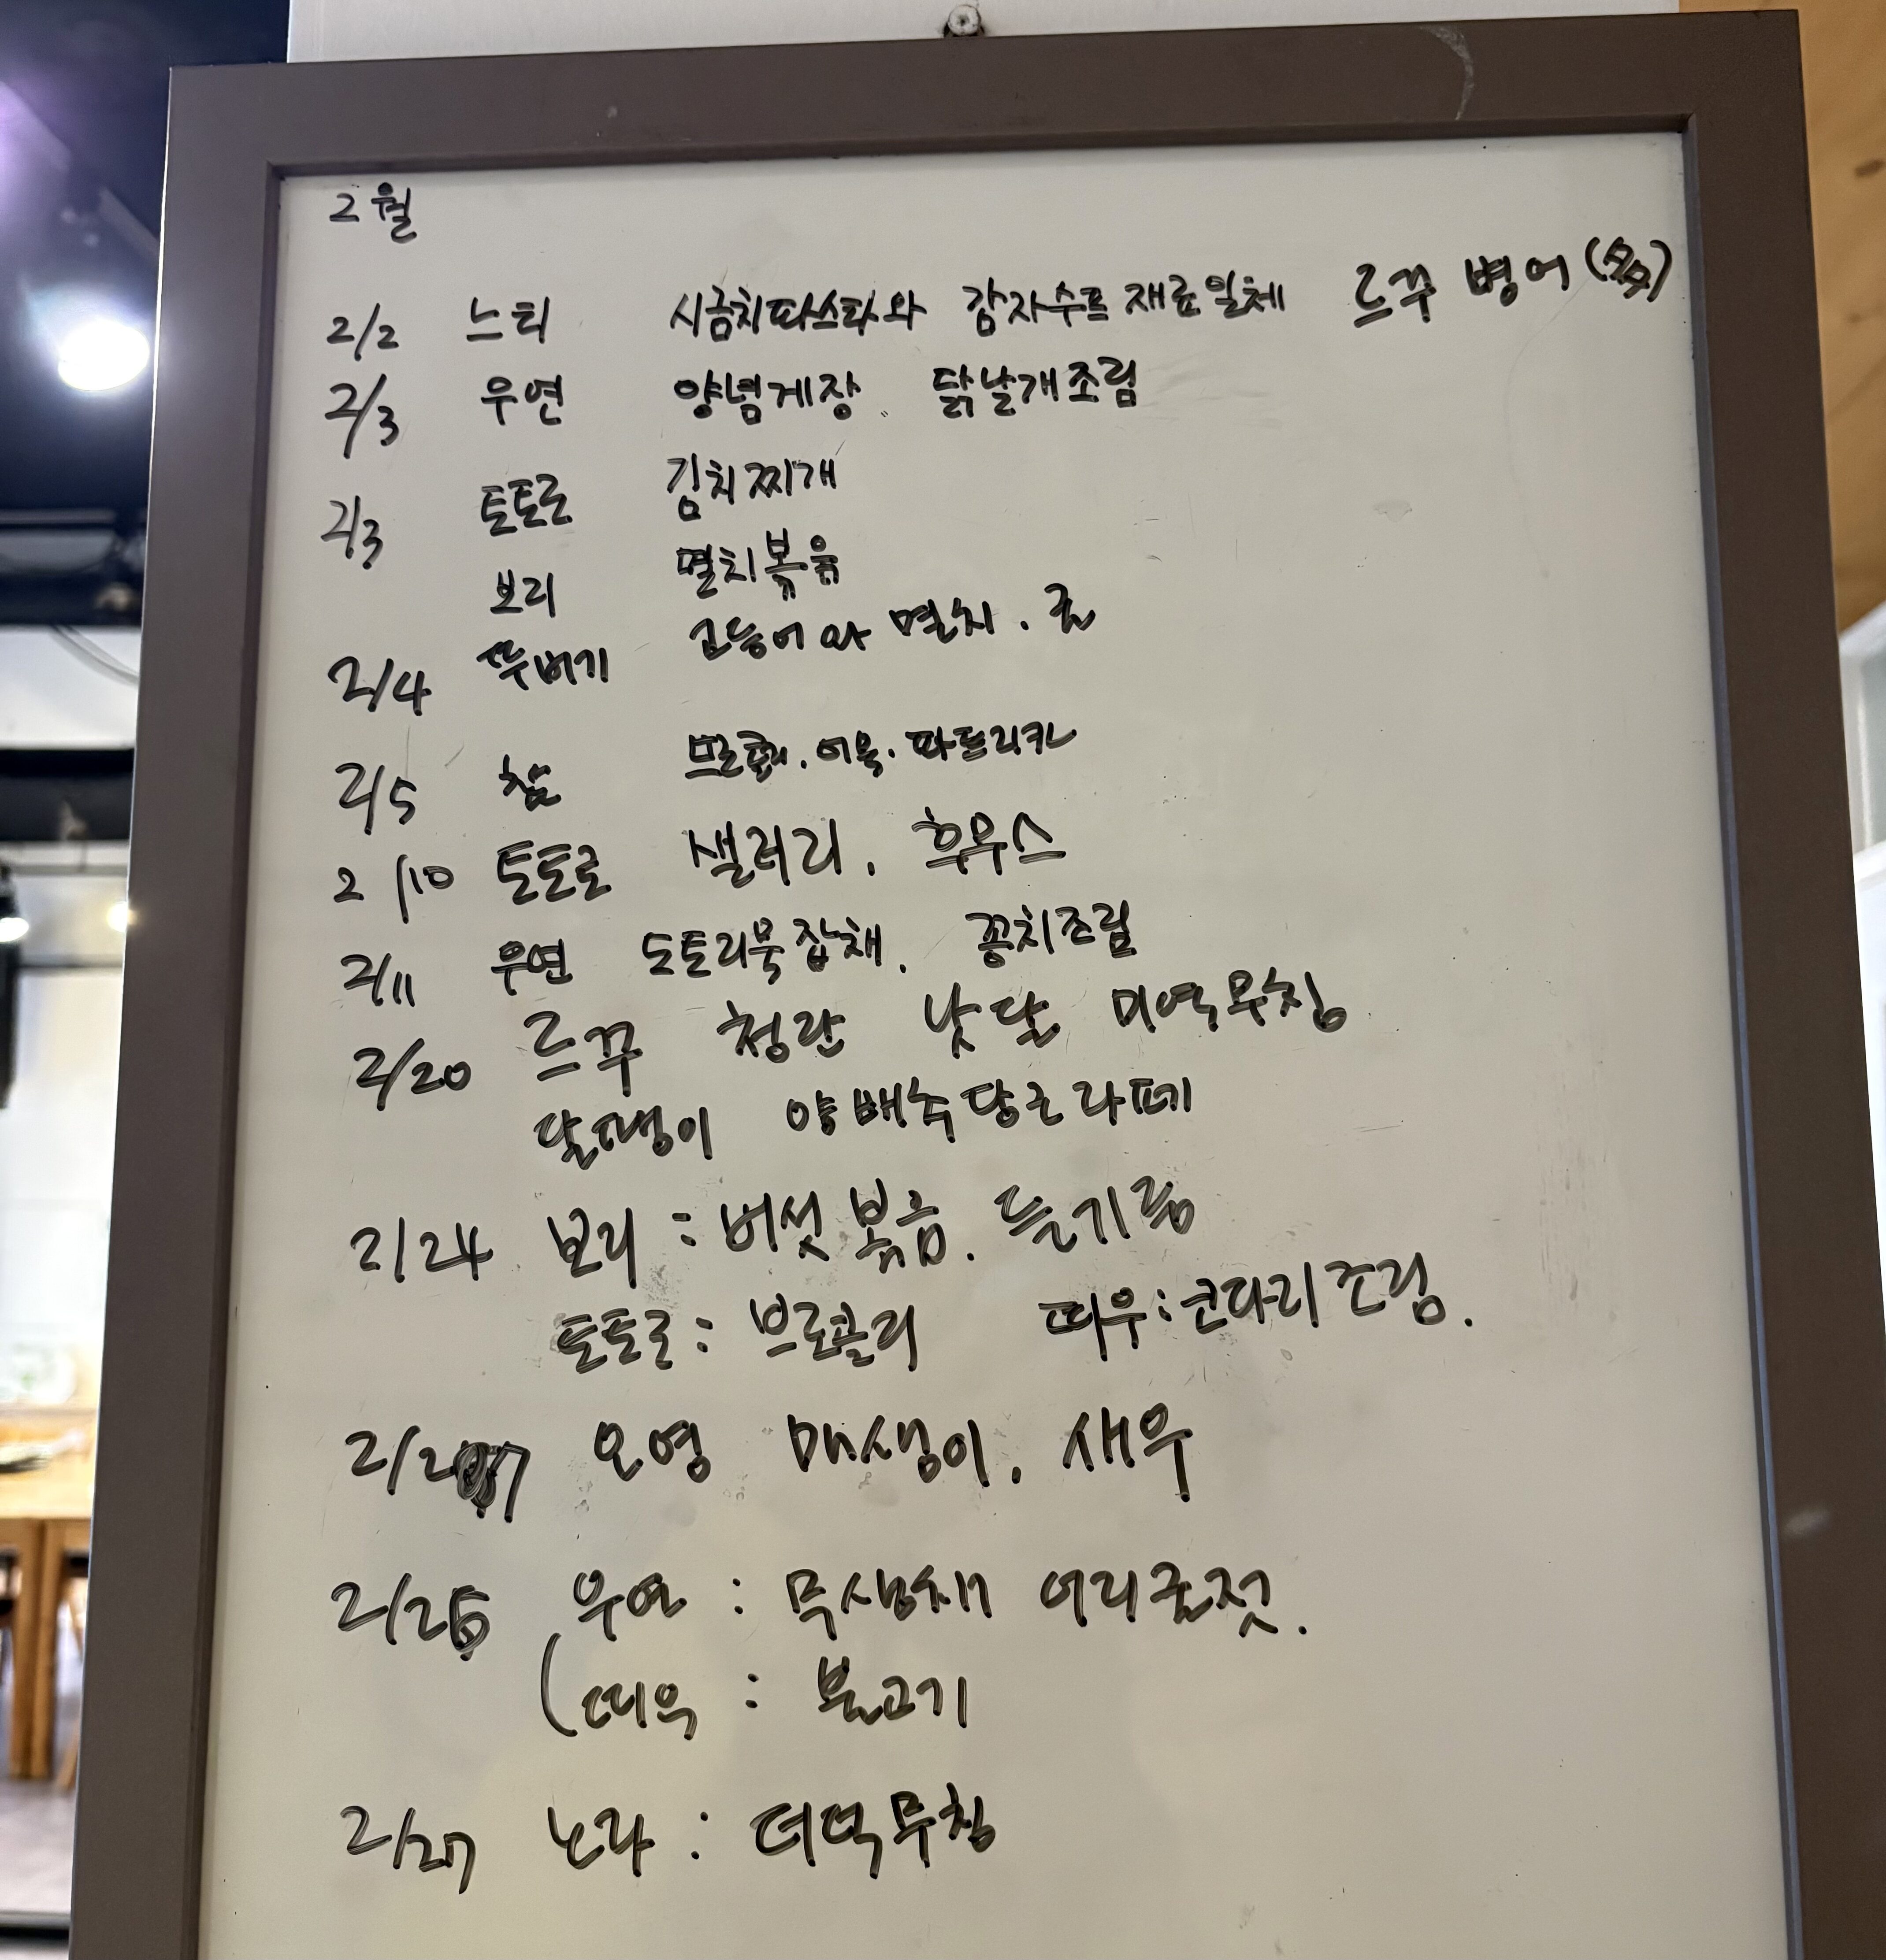 2월
2/2 느티 시금치파스타와 감자수프재료일체 르꾸 병어(多)
2/3 우연 양념게장. 닭날개조림
2/3 토토로 김치찌개
보리 멸치볶음
2/4 뚜버기 고등어와 멸치. 귤
2/5 참 어묵. 파프리카
2/10 토토로 샐러리. 후무스
2/11 우연 도토리묵잡채. 꽁치조림
2/20 르꾸 청란 낫달 미역무침
달팽이 양배추당근라페
2/24 보리 : 버섯볶음. 들기름
토토로 : 브로콜리 따우 : 코다리조림.
오영 매생이. 새우
우연 : 무생채 어리굴젓.
(따우 : 불고기
2/27 노라 : 더덕무침